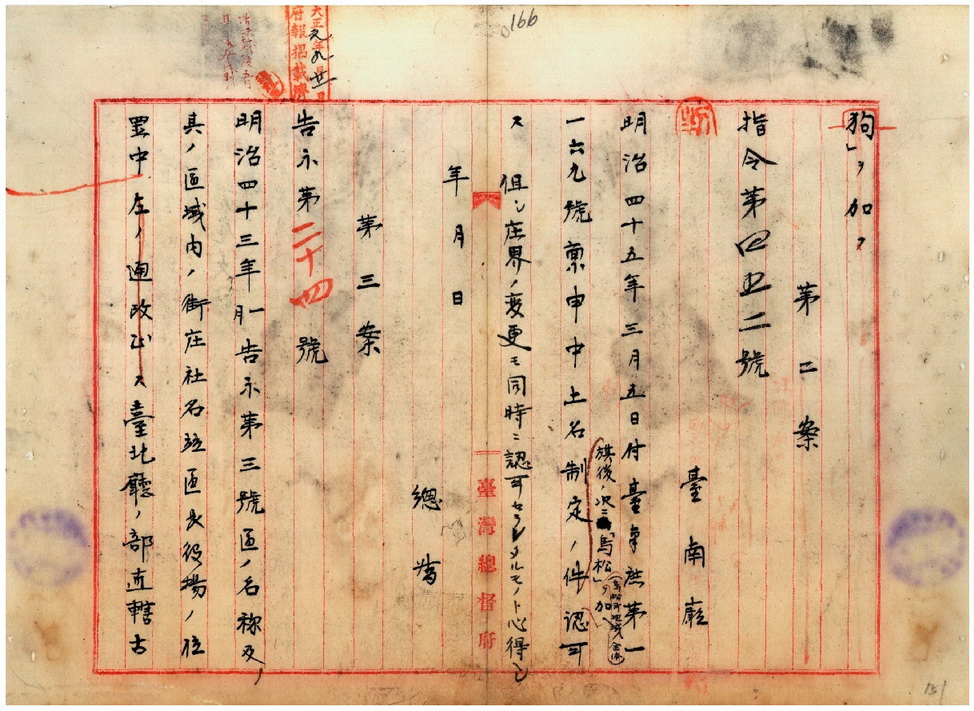 166
大正元年九月廿日
府報掲載濟
狗」ヲ加フ
第二案
指令第四五二號
臺南廳
明治四十五年三月五日付臺南庶第一
旗後ノ次ニ「馬松」ヲ加ヘ
一六九號稟申中土名制定ノ件認可
ス但シ庄界ノ変更モ同時ニ認可セラレタルモノト心得ヘシ
年月日
總督
臺灣總督府
第三案
告示第二十四號
明治四十三年一月告示第三號區ノ名称及
其ノ區域内ノ街庄社名竝區長役場ノ位
置中左ノ通改正ス臺北廳ノ部直轄古
151